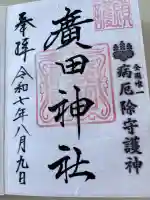 全国唯一
病厄除守護神
廣田神社
奉拝 令和七年八月九日